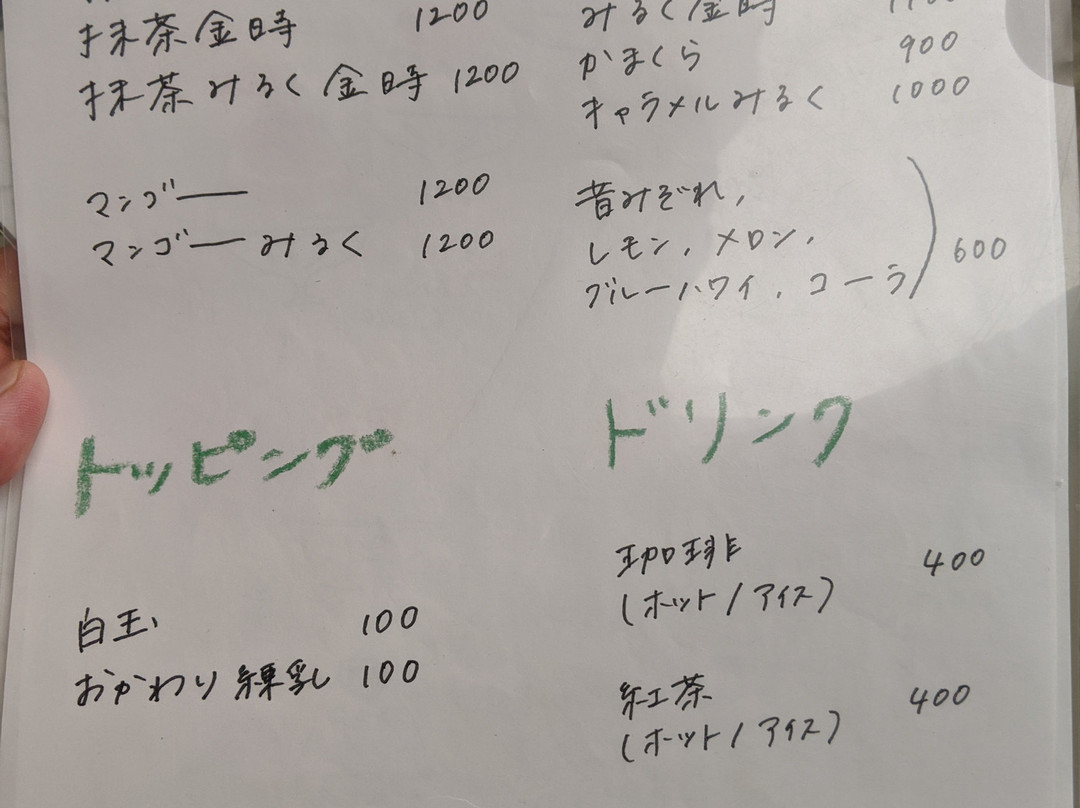 抹茶金時 1200
抹茶みるく金時 1200
マンゴー 1200
マンゴーみるく 1200
みるく金時
かまくら 900
キャラメルみるく 1000
昔みぞれ,
レモン, メロン,
ブルーハワイ, コーラ) 600
トッピング
白玉 100
おかわり練乳 100
ドリンク
珈琲 400
(ホット/アイス)
紅茶 400
(ホット/アイス)